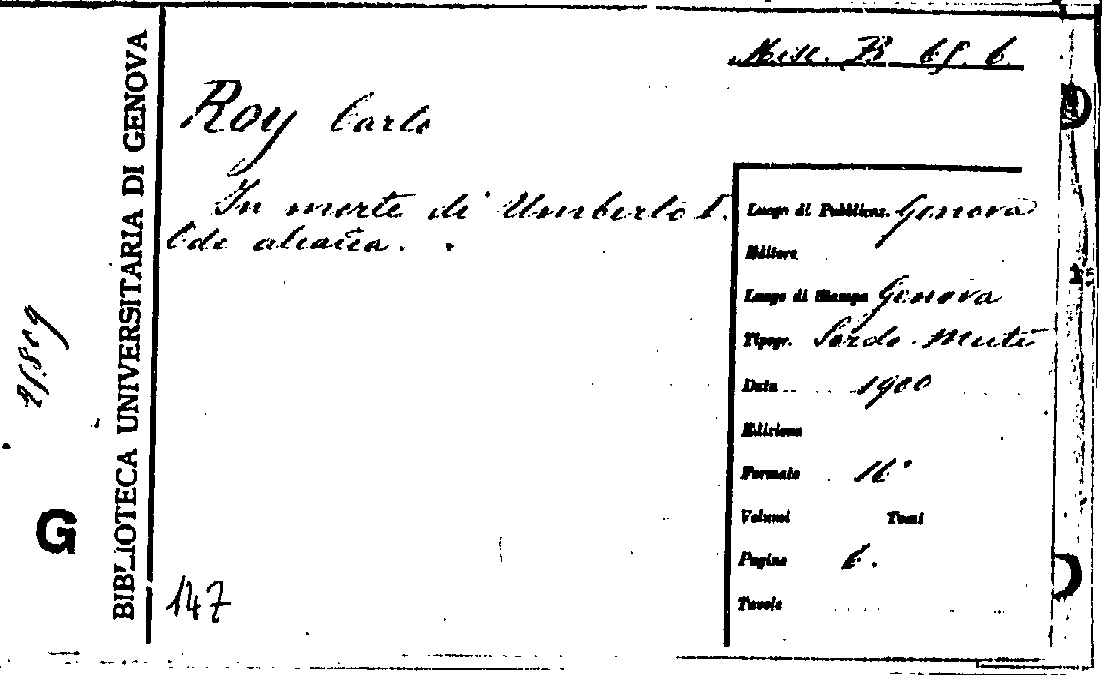 Misc. B 65. 6
Roy Carlo
In morte di Umberto I.
Ode alcaica.
Luogo di Pubblicaz. Genova
Editore
Luogo di Stampa Genova
Tipogr. Sordo-Muti
Data 1900
Edizione
Formato 16°
Volumi Tomi
Pagine 6.
Tavole
147
BIBLIOTECA UNIVERSITARIA DI GENOVA
G